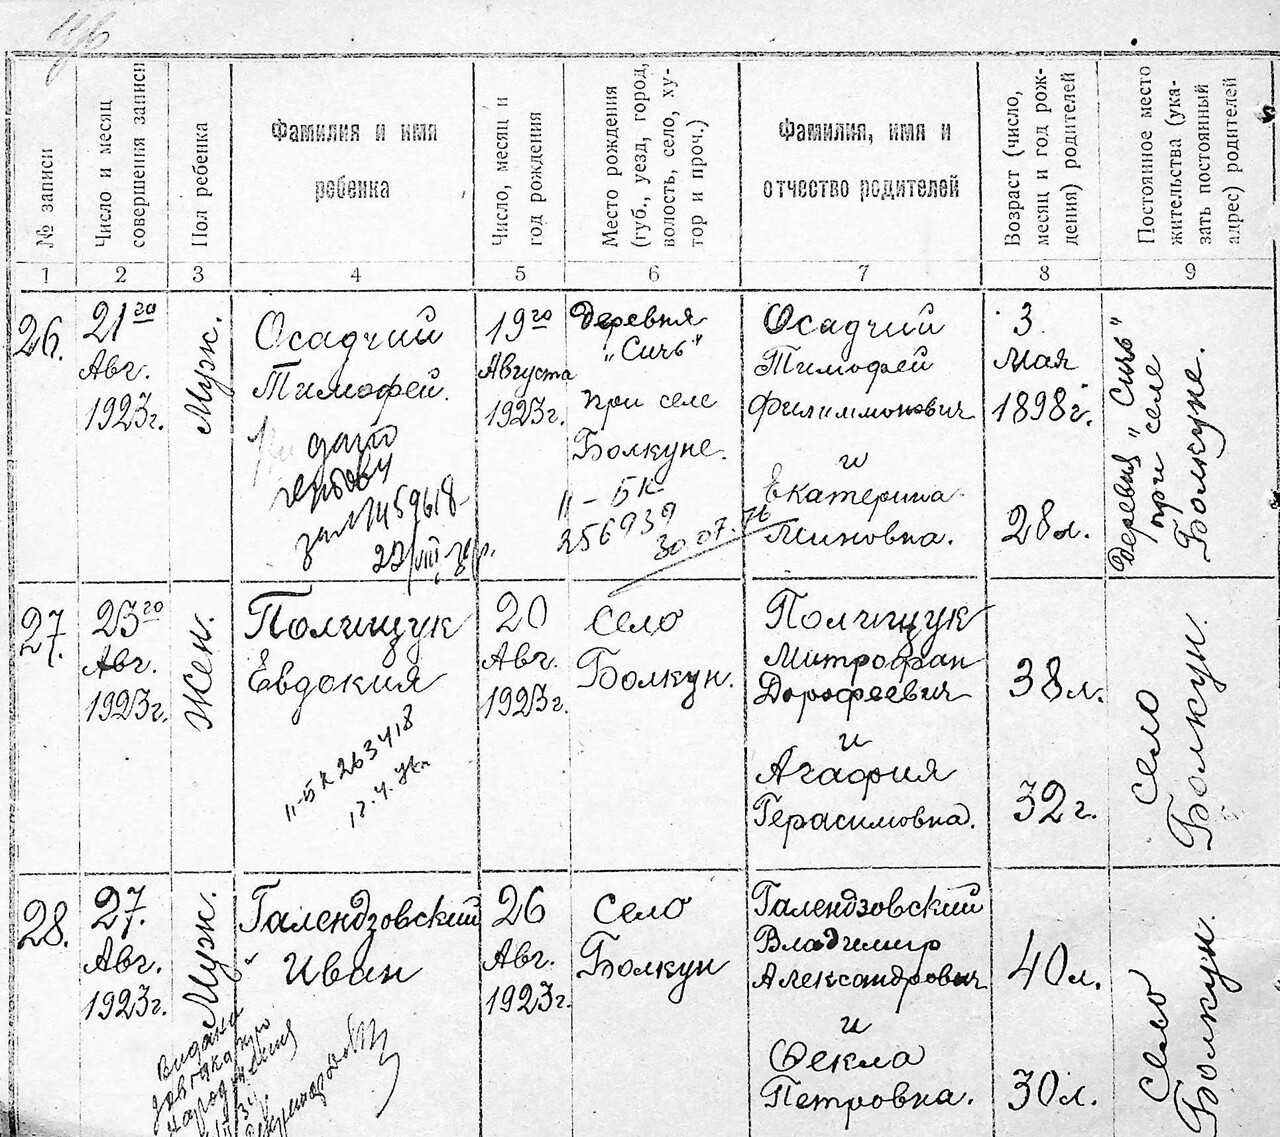 № записи
Число и месяц
совершения записи
Пол ребенка
Фамилия и имя
ребенка
Число, месяц и
год рождения
Место рождения
(губ., уезд, город,
волость, село, ху-
тор и проч.)
Фамилия, имя и
отчество родителей
Возраст (число,
месяц и год рож-
дения) родителей
Постоянное место
жительства (ука-
зать постоянный
адрес) родителей
1 2 3 4 5 6 7 8 9
26.
21го
Авг.
1923г.
Муж.
Осадчий
Тимофей.
22/VIII
19го
Августа
1923г.
Деревня
„Сичь"
при селе
Болкуне.
II-БК
256939
30.07.76
Осадчий
Тимофей
Филиммонович
и
Екатерина
Миновна.
3
мая
1898г.
28л.
Деревня „Сичь"
при селе
Болкуне.
27.
23го
Авг.
1923г.
Жен.
Полищук
Евдокия
II-БК 263418
20
Авг.
1923г.
село
Болкун.
Полищук
Митрофан
Дорофеевич
и
Агафия
Герасимовна.
38л.
32г.
село
Болкун.
28.
27.
Авг.
1923г.
Муж.
Галендзовский
Иван
Видана
26
Авг.
1923г.
село
Болкун
Галендзовский
Владимир
Александрович
и
Фекла
Петровна.
40л.
30л.
село
Болкун.